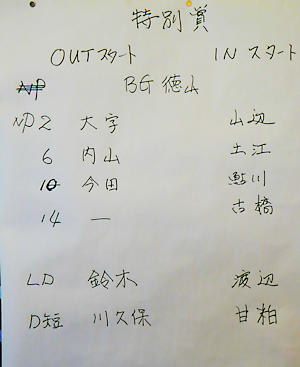 特別賞
OUTスタート INスタート
NP BG 徳山
NP2 大字 山辺
6 内山 土江
10 今田 鮎川
14 — 古橋
LD 鈴木 渡辺
D短 川久保 甘粕